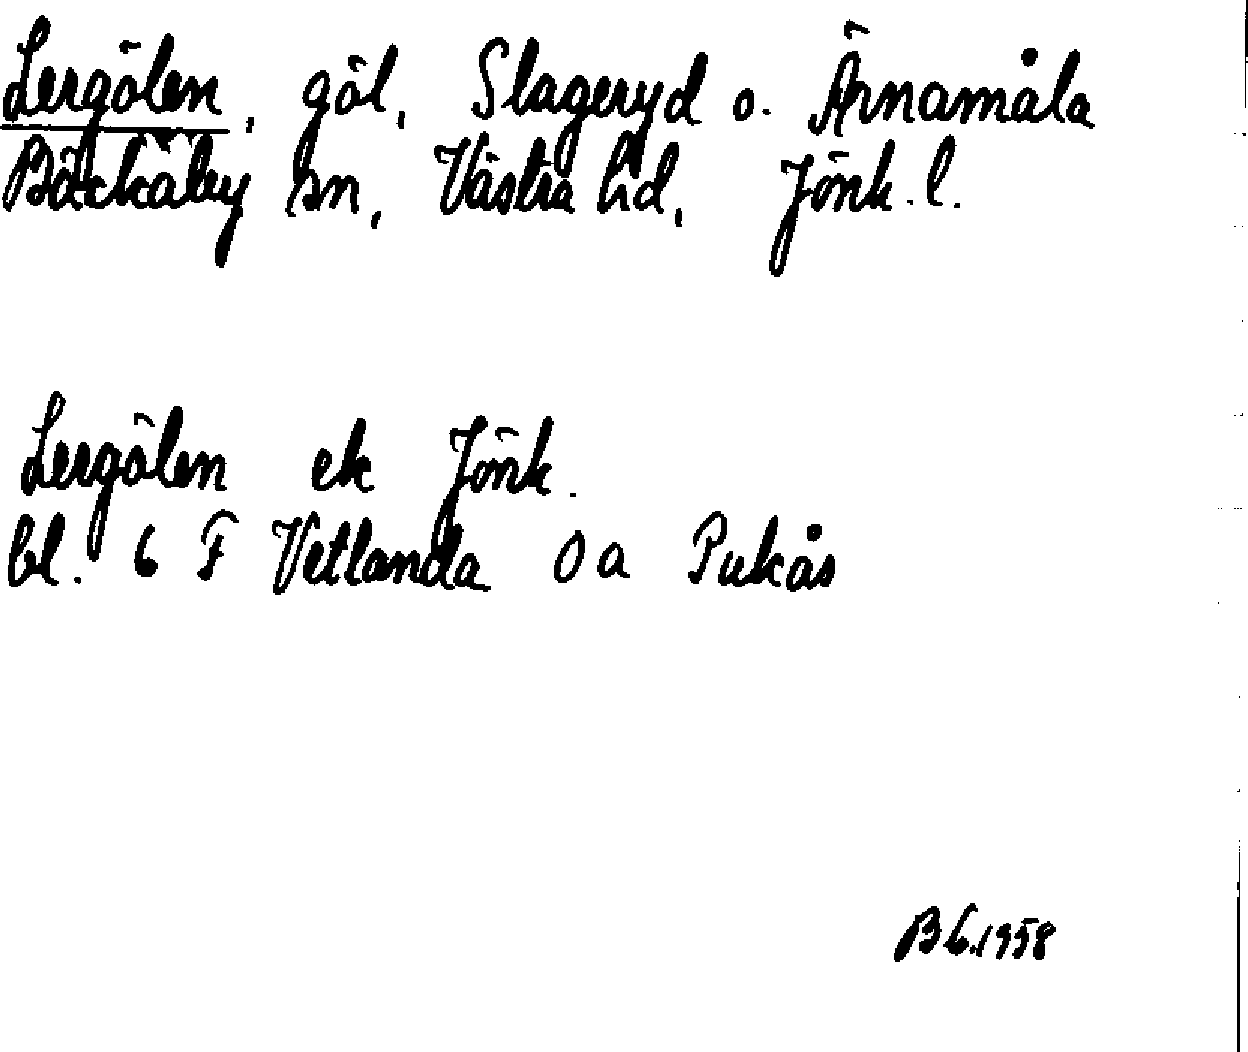 Lergölen, göl, Slageryd o. Ärnamåla
Bäckaby sn, Västra hd, Jönk. l.
Lergölen ek Jönk.
bl. 6 F Vetlanda 0 a Pukås
BG.1958